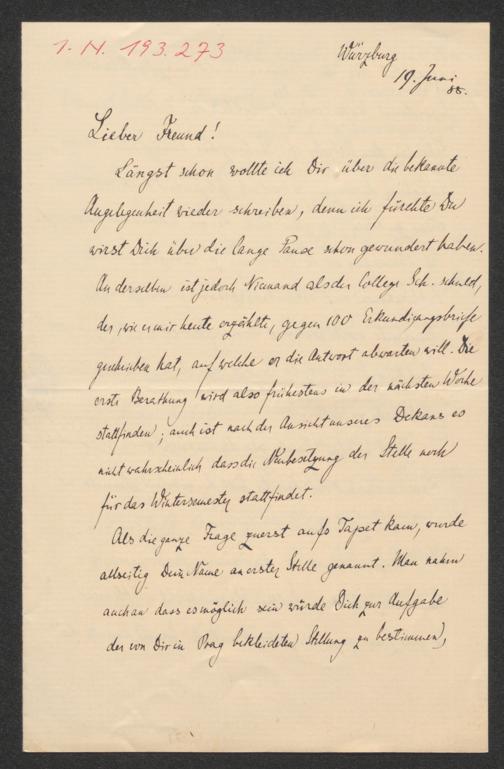 I. N. 193.273
Würzburg
19. Juni
85.
Lieber Freund!
Längst schon wollte ich Dir über die bekannte
Angelegenheit wieder schreiben, denn ich fürchte Du
wirst Dich über die lange Pause schon gewundert haben.
An derselben ist jedoch Niemand als der College Sch. schuld,
der, wie er mir heute erzählte, gegen 100 Erkundigungsbriefe
geschrieben hat, auf welche er die Antwort abwarten will. Die
erste Berathung wird also frühestens in der nächsten Woche
stattfinden; auch ist nach der Ansicht unseres Dekans es
nicht wahrscheinlich dass die Neubesetzung der Stelle noch
für das Wintersemester stattfindet.
Als die ganze Frage zuerst aufs Tapet kam, wurde
allseitig Dein Name an erster Stelle genannt. Man nahm
auch an dass es möglich sein würde Dich zur Aufgabe
der von Dir in Prag bekleideten Stellung zu bestimmen,